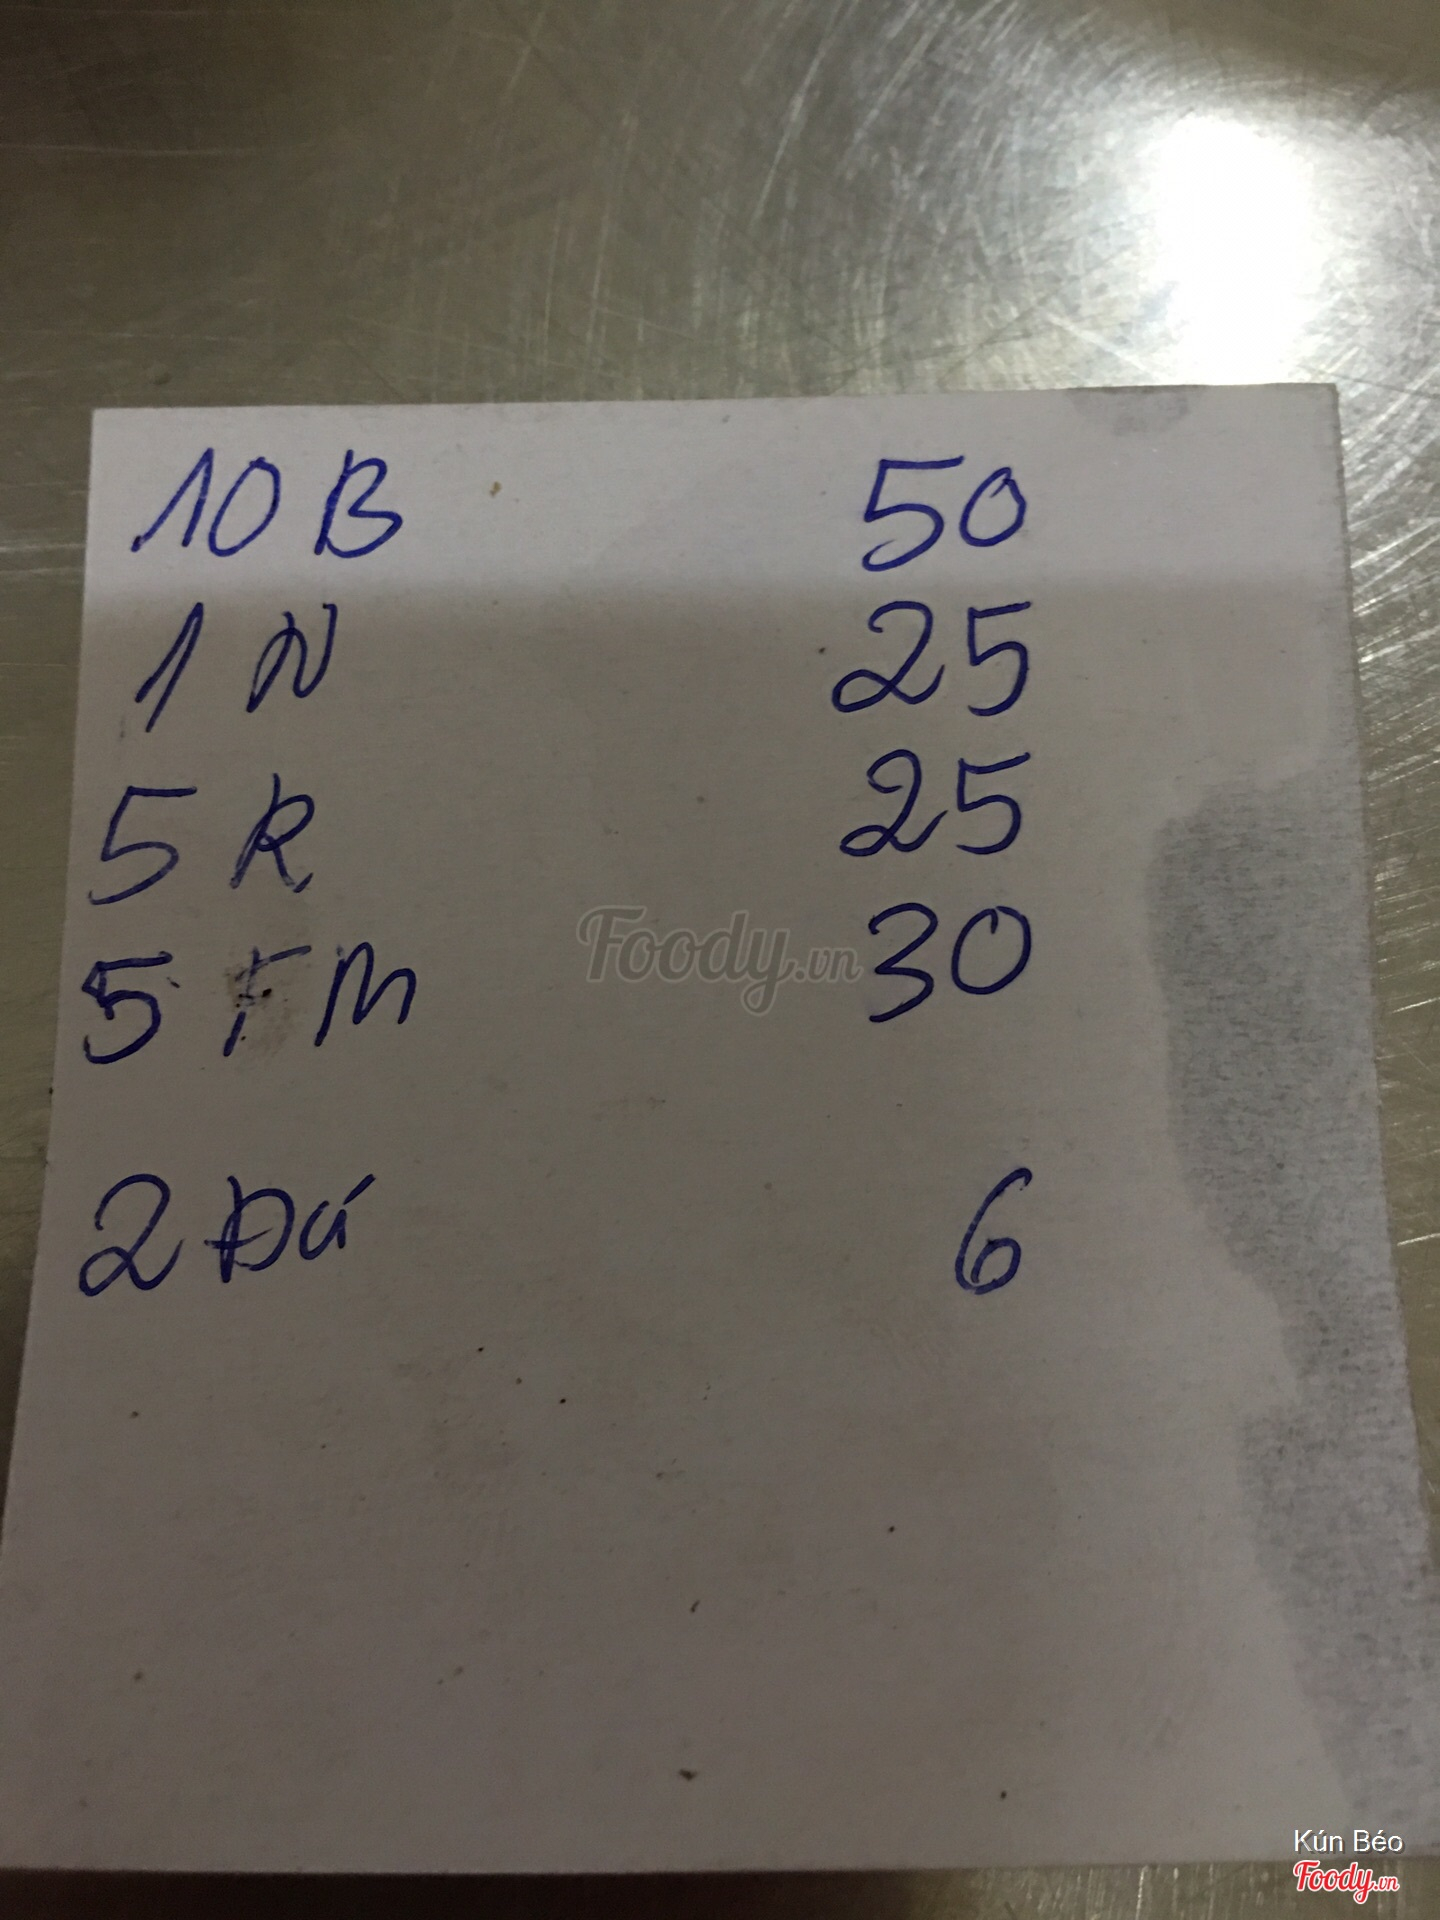 10 B 50
1 N 25
5 R 25
5 FM 30
2 Đá 6
Foody.vn
Kún Béo
Foody.vn